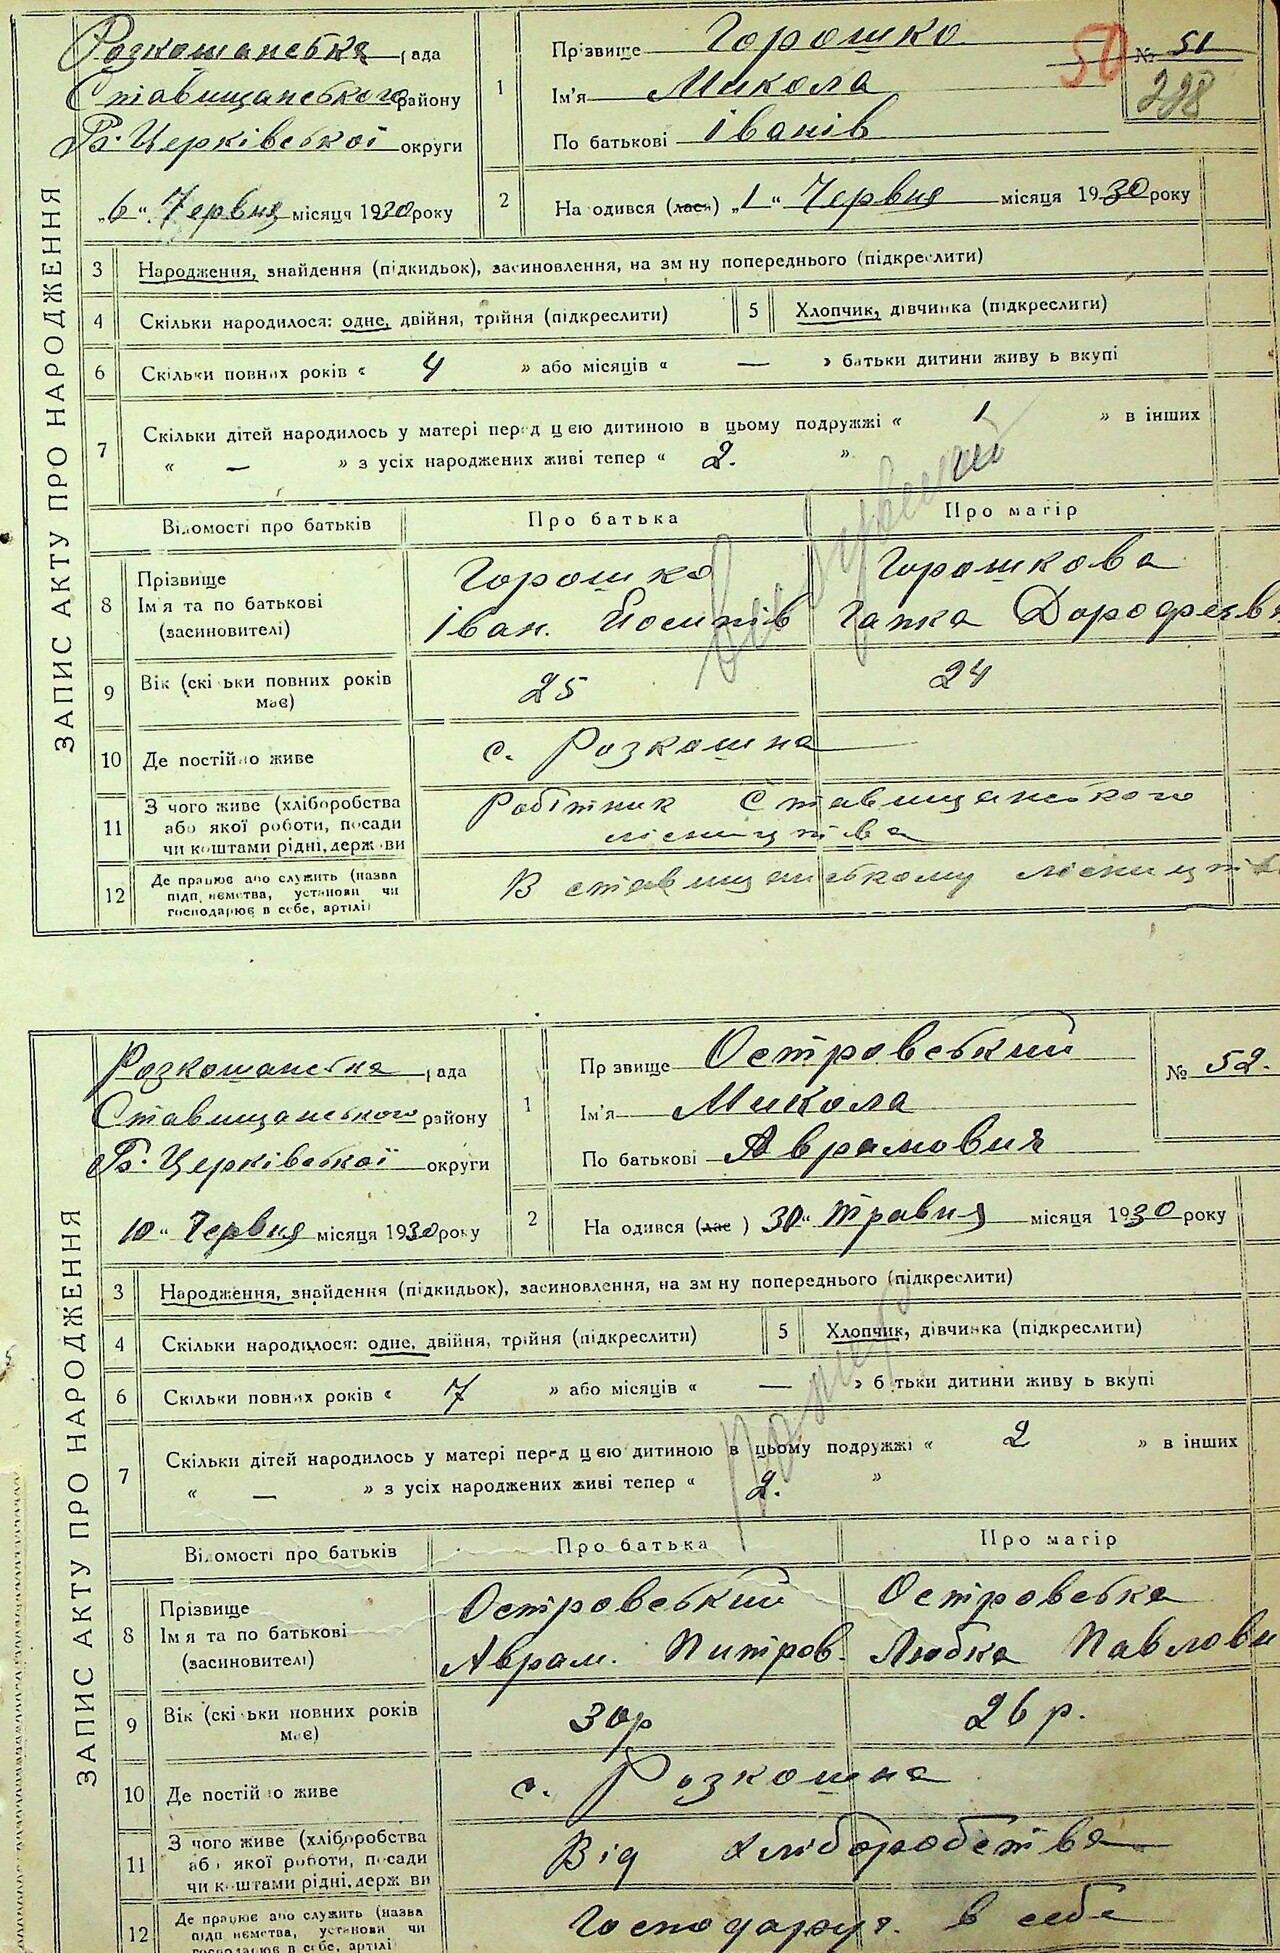 ЗАПИС АКТУ ПРО НАРОДЖЕННЯ
Розкошанська рада
Ставищанського району
Б. Церківської округи
„6“ Червня місяця 1930 року
1
Прізвище Горошко
Ім'я Микола
По батькові Іванів
50
№ 51
298
2
На одився (лась) „1“ Червня місяця 1930 року
3 Народження, знайдення (підкидьок), засиновлення, на зм ну попереднього (підкреслити)
4 Скільки народилося: одне, двійня, трійня (підкреслити)
5 Хлопчик, дівчинка (підкреслити)
6 Скільки повних років « 4 » або місяців « — » батьки дитини живу ь вкупі
7 Скільки дітей народилось у матері перед цією дитиною в цьому подружжі « 1 » в інших
« — » з усіх народжених живі тепер « 2. »
Відомості про батьків Про батька Про матір
8 Прізвище
Ім'я та по батькові
(засиновителі)
Горошко
Іван. Йосипів
Горошкова
Гапка Дорофеєвн
9 Вік (скі ьки повних років
має)
25 24
10 Де постійно живе с. Розкошна
11 З чого живе (хліборобства
або якої роботи, посади
чи коштами рідні, держ ви
Робітник Ставищанського
лісництва
12 Де працює або служить (назва
підп ємства, установи чи
господарює в себе, артілі
В ставищанському лісництв
ЗАПИС АКТУ ПРО НАРОДЖЕННЯ
Розкошанська рада
Ставищанського району
Б. Церківської округи
10 “ Червня місяця 1930 року
1
Пр звище Островський
Ім'я Микола
По батькові Аврамович
№ 52.
2
На одився (лас ) 30 “ травня місяця 1930 року
3 Народження, знайдення (підкидьок), засиновлення, на зм ну попереднього (підкреслити)
4 Скільки народилося: одне, двійня, трійня (підкреслити)
5 Хлопчик, дівчинка (підкреслити)
6 Скільки повних років « 7 » або місяців « — » б тьки дитини живу ь вкупі
7 Скільки дітей народилось у матері перед цією дитиною в цьому подружжі « 2 » в інших
« — » з усіх народжених живі тепер « 2. »
помер
Відомості про батьків Про батька Про матір
8 Прізвище
Ім'я та по батькові
(засиновителі)
Островський
Аврам. Питров.
Островська
Любка Павловн
9 Вік (скі ьки повних років
має)
30р 26 р.
10 Де постій о живе с. Розкошна
11 З чого живе (хліборобства
або якої роботи, посади
чи коштами рідні, держ ви
Від хліборобства
12 Де працює або служить (назва
підп ємства, установи чи
господарює в себе, артілі
Господарює. в себе